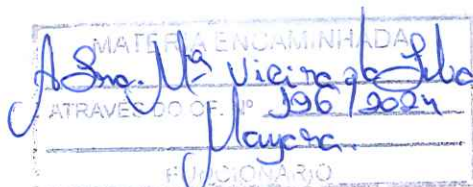 MATÉRIA ENCAMINHADA
A Sra. Mª Vieira da Silva
ATRAVÉS DO OF. Nº 196/2024
Mayara.
FUNCIONÁRIO